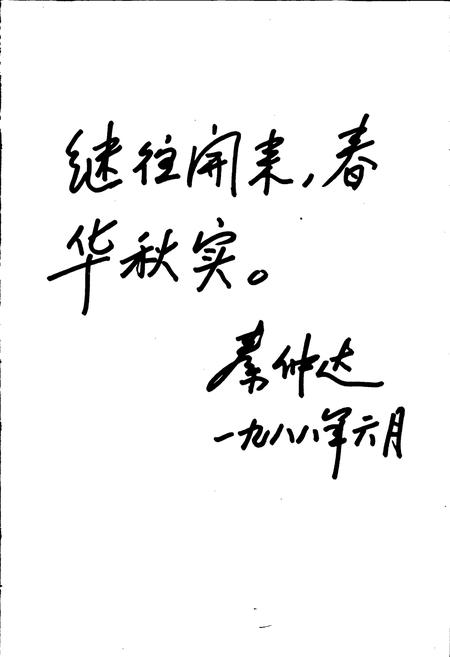 继往开来,春
华秋实。
秦仲达
一九八八年六月